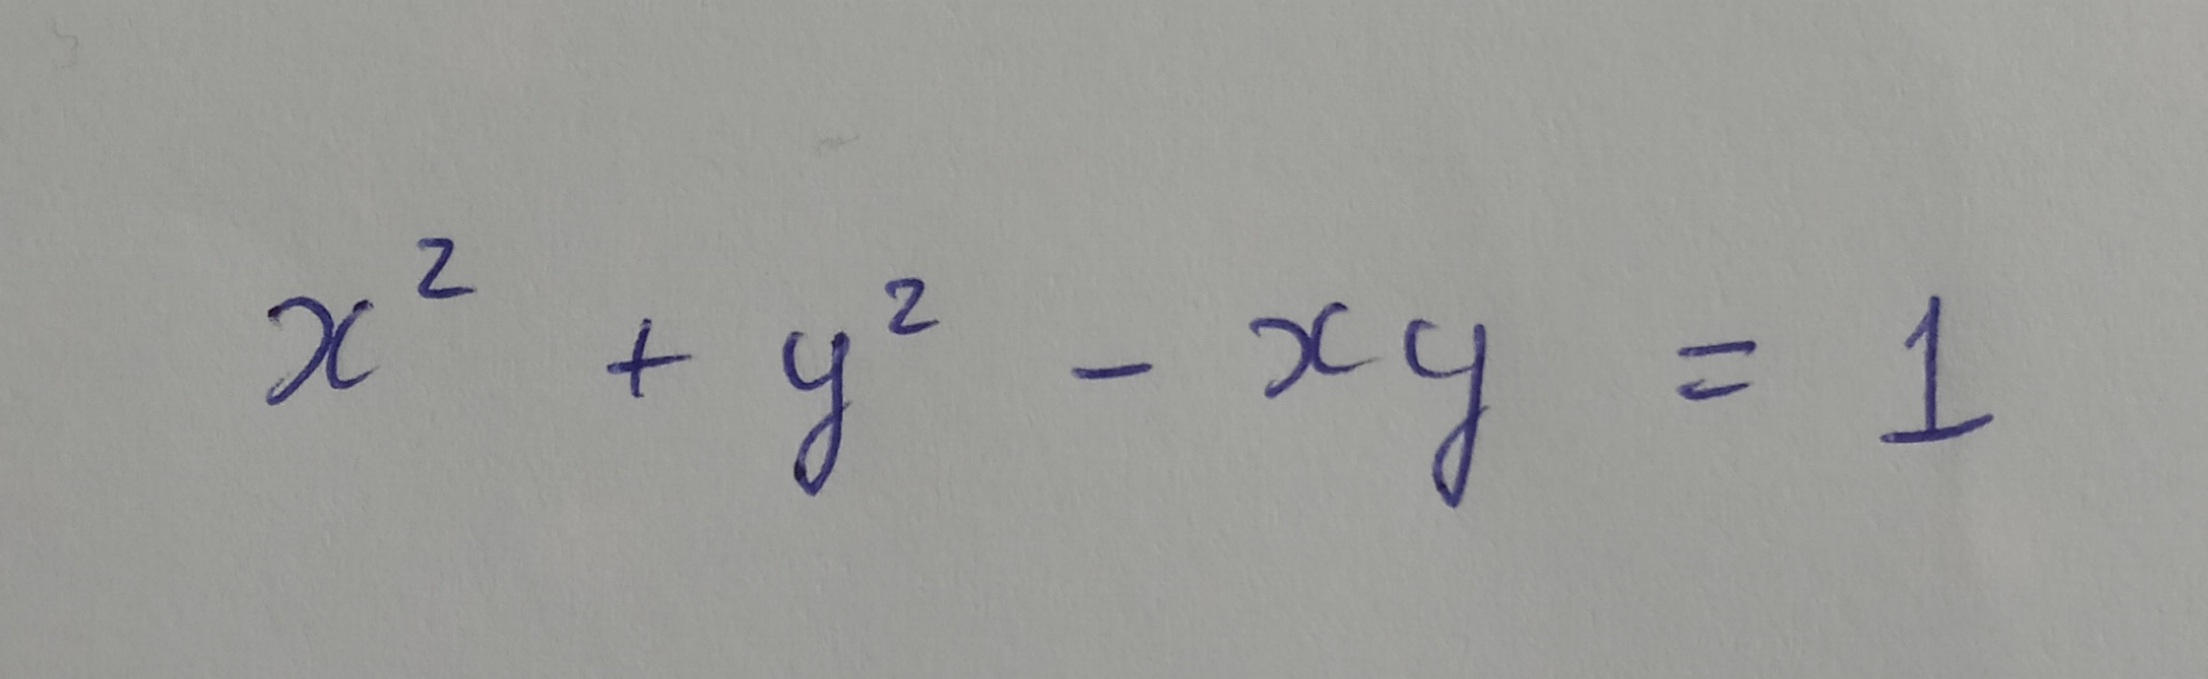 x² + y² - xy = 1